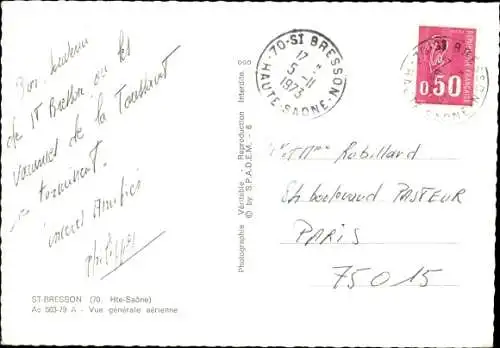 Bon souvenir
de St Bresson où les
vacances de la Toussaint
se terminent.
Sincères Amitiés
Philippe
ST-BRESSON (70. Hte-Saône)
Ac 503-79 A - Vue générale aérienne
Photographie Véritable - Reproduction Interdite
© by S.P.A.D.E.M. - 6
70-ST BRESSON
17
5-11
1973
HAUTE-SAONE
REPUBLIQUE FRANÇAISE
0,50
Mme Robillard
boulevard PASTEUR
PARIS
75015